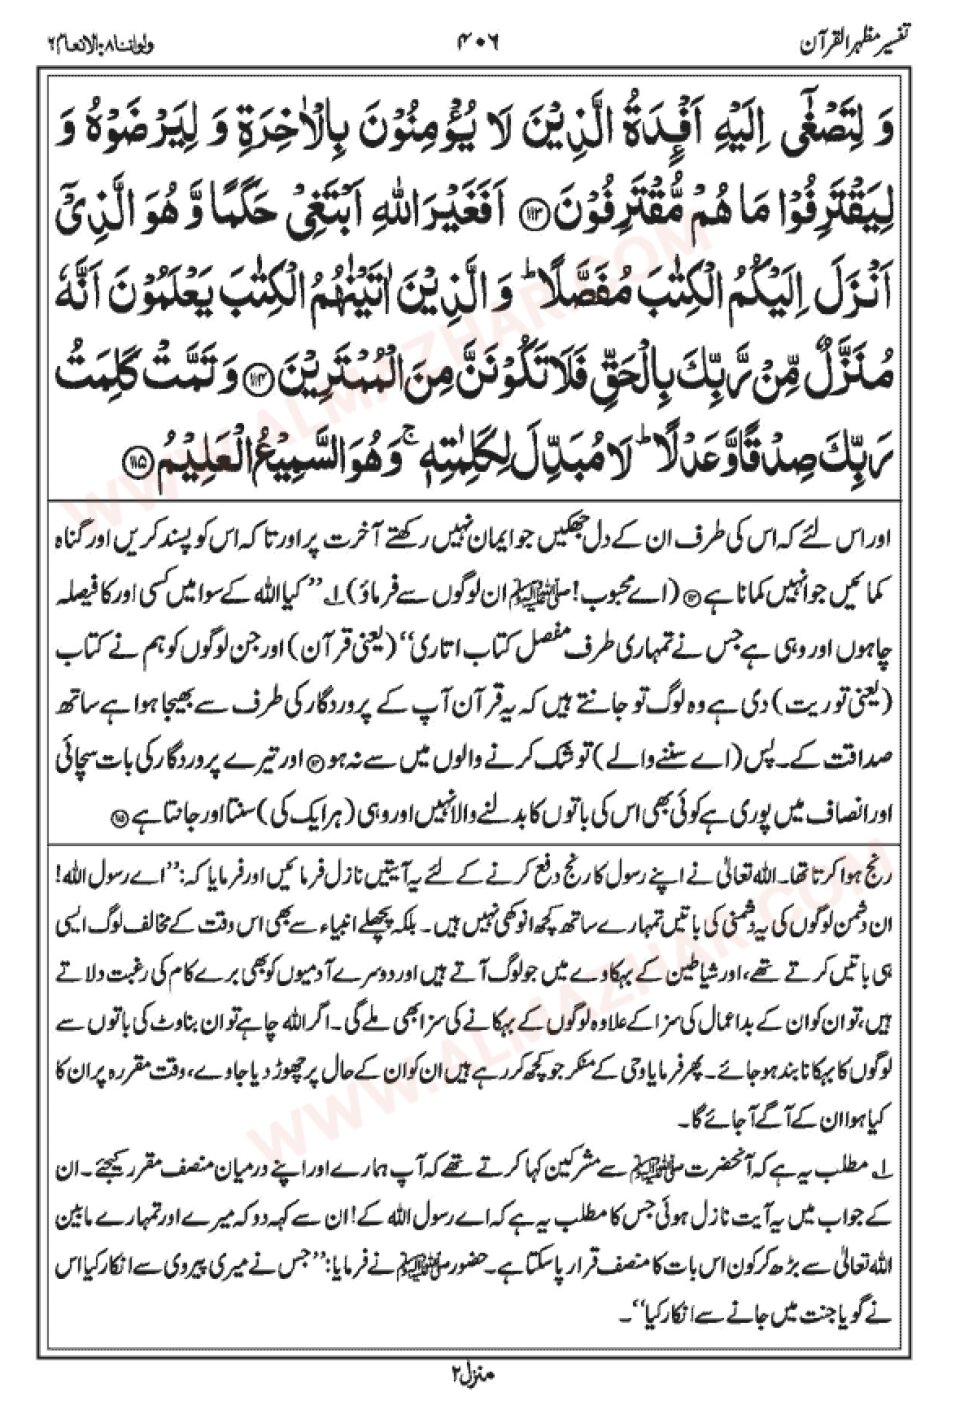 تفسیر مظہر القرآن ۴۰۶ ولو اننا ۸: الانعام ۶
وَ لِتَصْغٰۤى اِلَیْهِ اَفْـِٕدَةُ الَّذِیْنَ لَا یُؤْمِنُوْنَ بِالْاٰخِرَةِ وَ لِیَرْضَوْهُ وَ
لِیَقْتَرِفُوْا مَا هُمْ مُّقْتَرِفُوْنَ ﴿۱۱۳﴾ اَفَغَیْرَ اللّٰهِ اَبْتَغِیْ حَكَمًا وَّ هُوَ الَّذِیْۤ
اَنْزَلَ اِلَیْكُمُ الْكِتٰبَ مُفَصَّلًا ؕ وَ الَّذِیْنَ اٰتَیْنٰهُمُ الْكِتٰبَ یَعْلَمُوْنَ اَنَّهٗ
مُنَزَّلٌ مِّنْ رَّبِّكَ بِالْحَقِّ فَلَا تَكُوْنَنَّ مِنَ الْمُمْتَرِیْنَ ﴿۱۱۴﴾ وَ تَمَّتْ كَلِمَتُ
رَبِّكَ صِدْقًا وَّ عَدْلًا ؕ لَا مُبَدِّلَ لِكَلِمٰتِهٖ ۚ وَ هُوَ السَّمِیْعُ الْعَلِیْمُ ﴿۱۱۵﴾
اور اس لئے کہ اس کی طرف ان کے دل جھکیں جو ایمان نہیں رکھتے آخرت پر اور تا کہ اس کو پسند کریں اور گناہ
کمائیں جو انہیں کمانا ہے ﴿۱۱۳﴾ (اے محبوب! ﷺ ان لوگوں سے فرماؤ) ۱؎ ”کیا اللہ کے سوا میں کسی اور کا فیصلہ
چاہوں اور وہی ہے جس نے تمہاری طرف مفصل کتاب اتاری“ (یعنی قرآن) اور جن لوگوں کو ہم نے کتاب
(یعنی توریت) دی ہے وہ لوگ تو جانتے ہیں کہ یہ قرآن آپ کے پروردگار کی طرف سے بھیجا ہوا ہے ساتھ
صداقت کے۔ پس (اے سننے والے) تو شک کرنے والوں میں سے نہ ہو ﴿۱۱۴﴾ اور تیرے پروردگار کی بات سچائی
اور انصاف میں پوری ہے کوئی بھی اس کی باتوں کا بدلنے والا نہیں اور وہی (ہر ایک کی) سنتا اور جانتا ہے ﴿۱۱۵﴾
رنج ہوا کرتا تھا۔ اللہ تعالیٰ نے اپنے رسول کا رنج دفع کرنے کے لئے یہ آیتیں نازل فرمائیں اور فرمایا کہ: ”اے رسول اللہ!
ان دشمن لوگوں کی یہ دشمنی کی باتیں تمہارے ساتھ کچھ انوکھی نہیں ہیں۔ بلکہ پچھلے انبیاء سے بھی اس وقت کے مخالف لوگ ایسی
ہی باتیں کرتے تھے، اور شیاطین کے بہکاوے میں جو لوگ آتے ہیں اور دوسرے آدمیوں کو بھی برے کام کی رغبت دلاتے
ہیں، تو ان کو ان کے بد اعمال کی سزا کے علاوہ لوگوں کے بہکانے کی سزا بھی ملے گی۔ اگر اللہ چاہے تو ان بناوٹ کی باتوں سے
لوگوں کا بہکانا بند ہو جائے۔ پھر فرمایا وحی کے منکر جو کچھ کر رہے ہیں ان کو ان کے حال پر چھوڑ دیا جاوے، وقت مقررہ پر ان کا
کیا ہوا ان کے آگے آجائے گا۔
۱؎ مطلب یہ ہے کہ آنحضرت ﷺ سے مشرکین کہا کرتے تھے کہ آپ ہمارے اور اپنے درمیان منصف مقرر کیجئے۔ ان
کے جواب میں یہ آیت نازل ہوئی جس کا مطلب یہ ہے کہ اے رسول اللہ کے! ان سے کہہ دو کہ میرے اور تمہارے مابین
اللہ تعالیٰ سے بڑھ کر کون اس بات کا منصف قرار پا سکتا ہے۔ حضور ﷺ نے فرمایا: ”جس نے میری پیروی سے انکار کیا اس
نے گویا جنت میں جانے سے انکار کیا“۔
منزل ۲
WWW.ALMAZHAR.COM
WWW.ALMAZHAR.COM